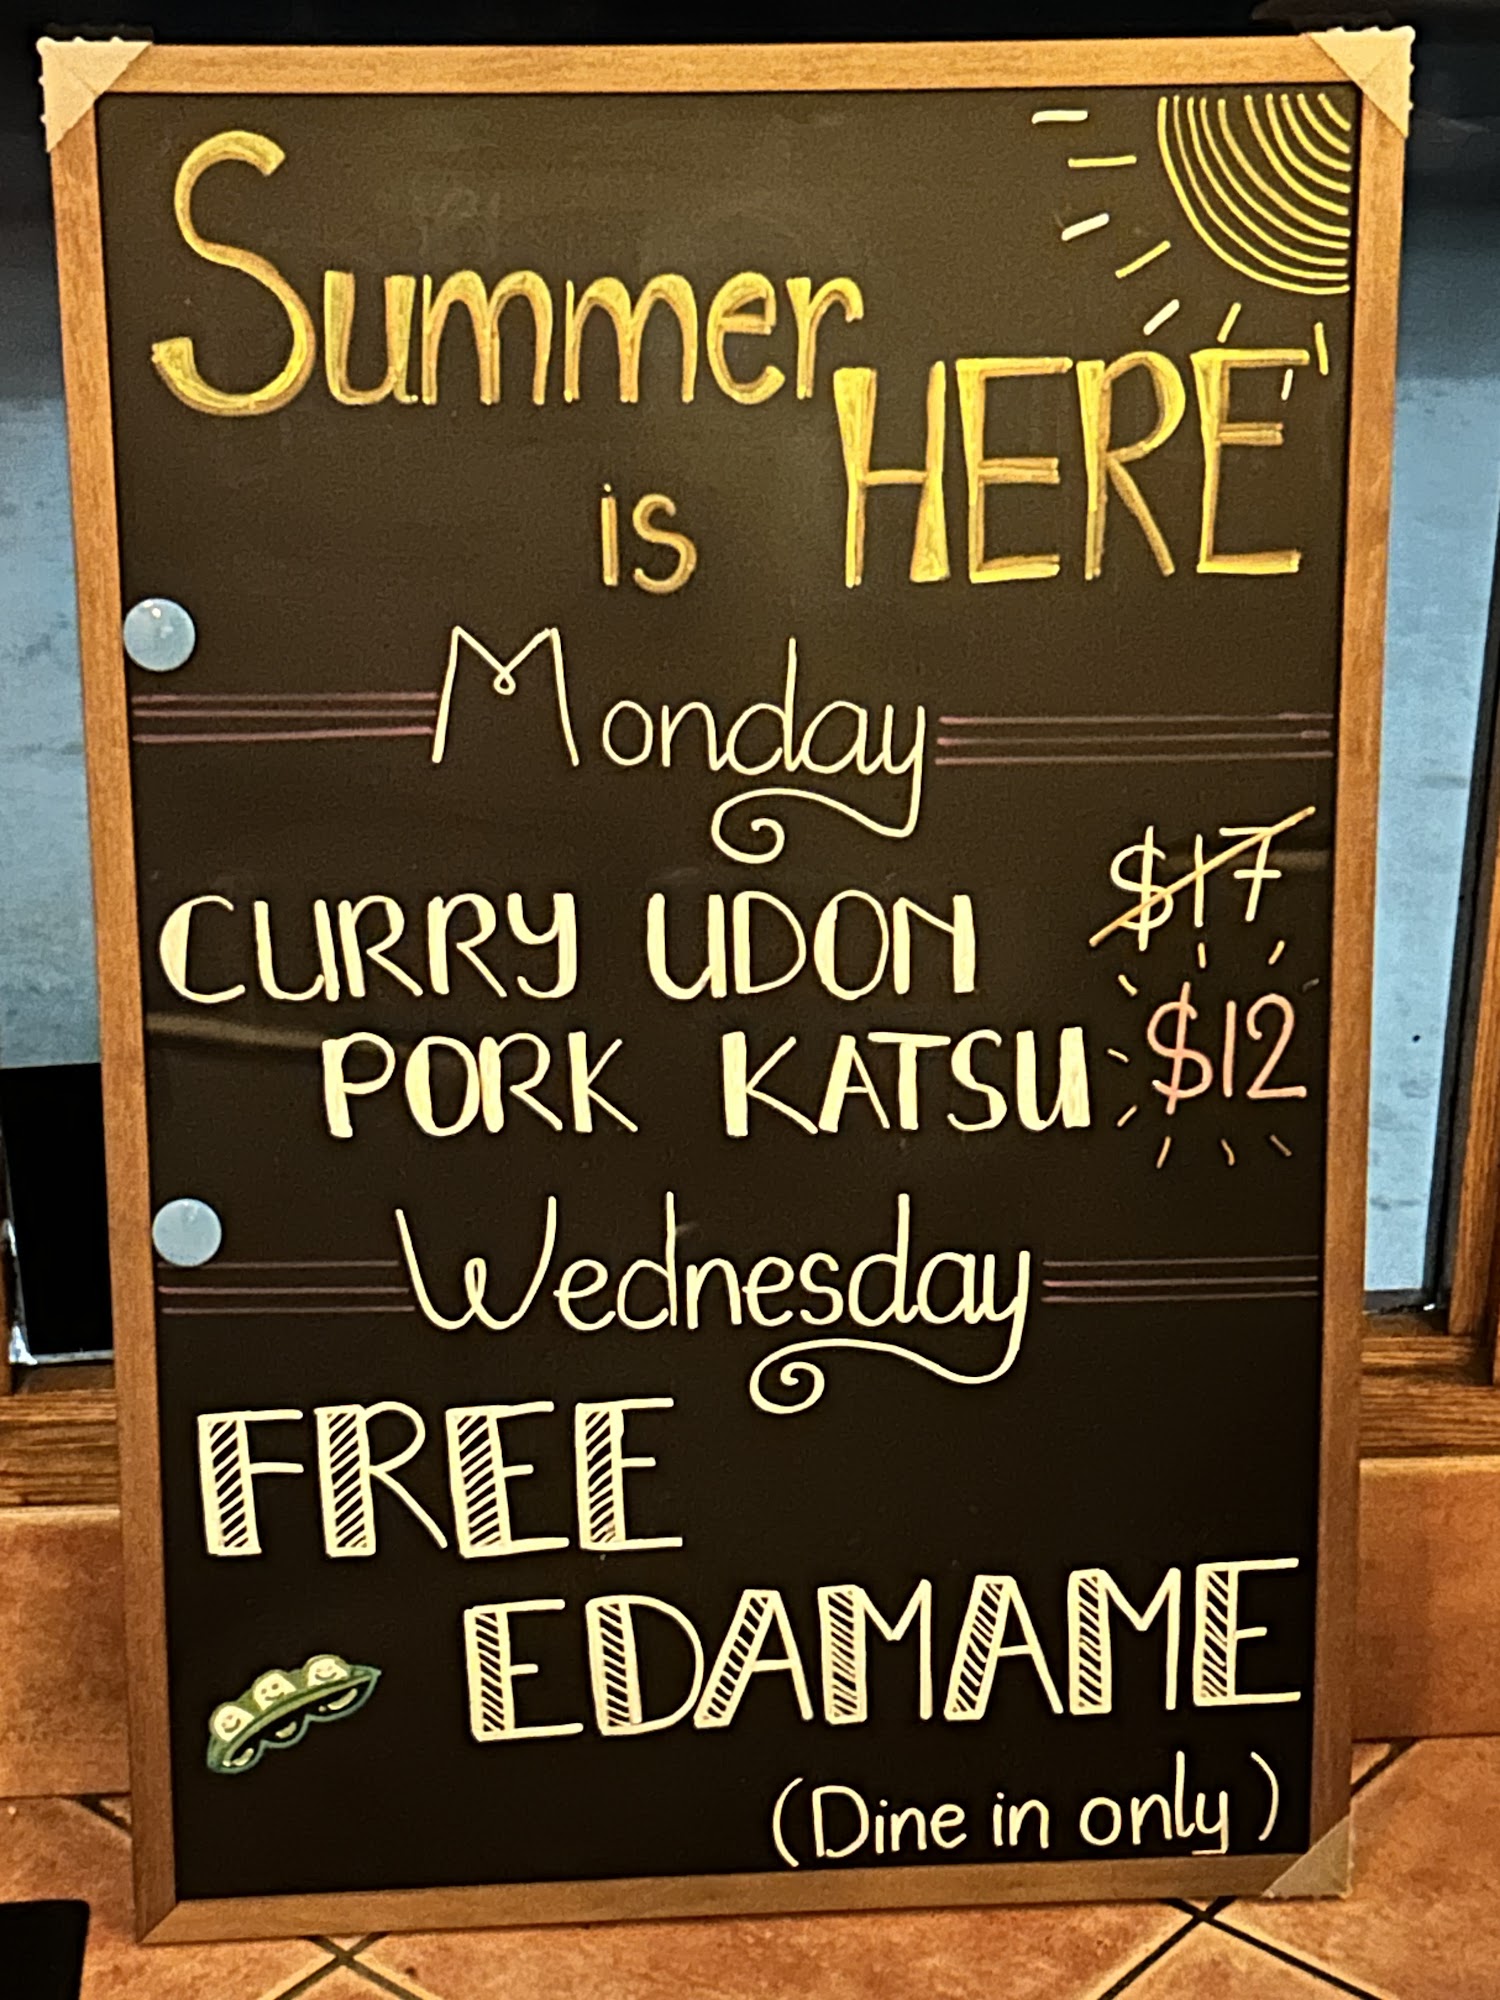 Summer
is HERE
Monday
CURRY UDON $17
PORK KATSU $12
Wednesday
FREE
EDAMAME
(Dine in only)